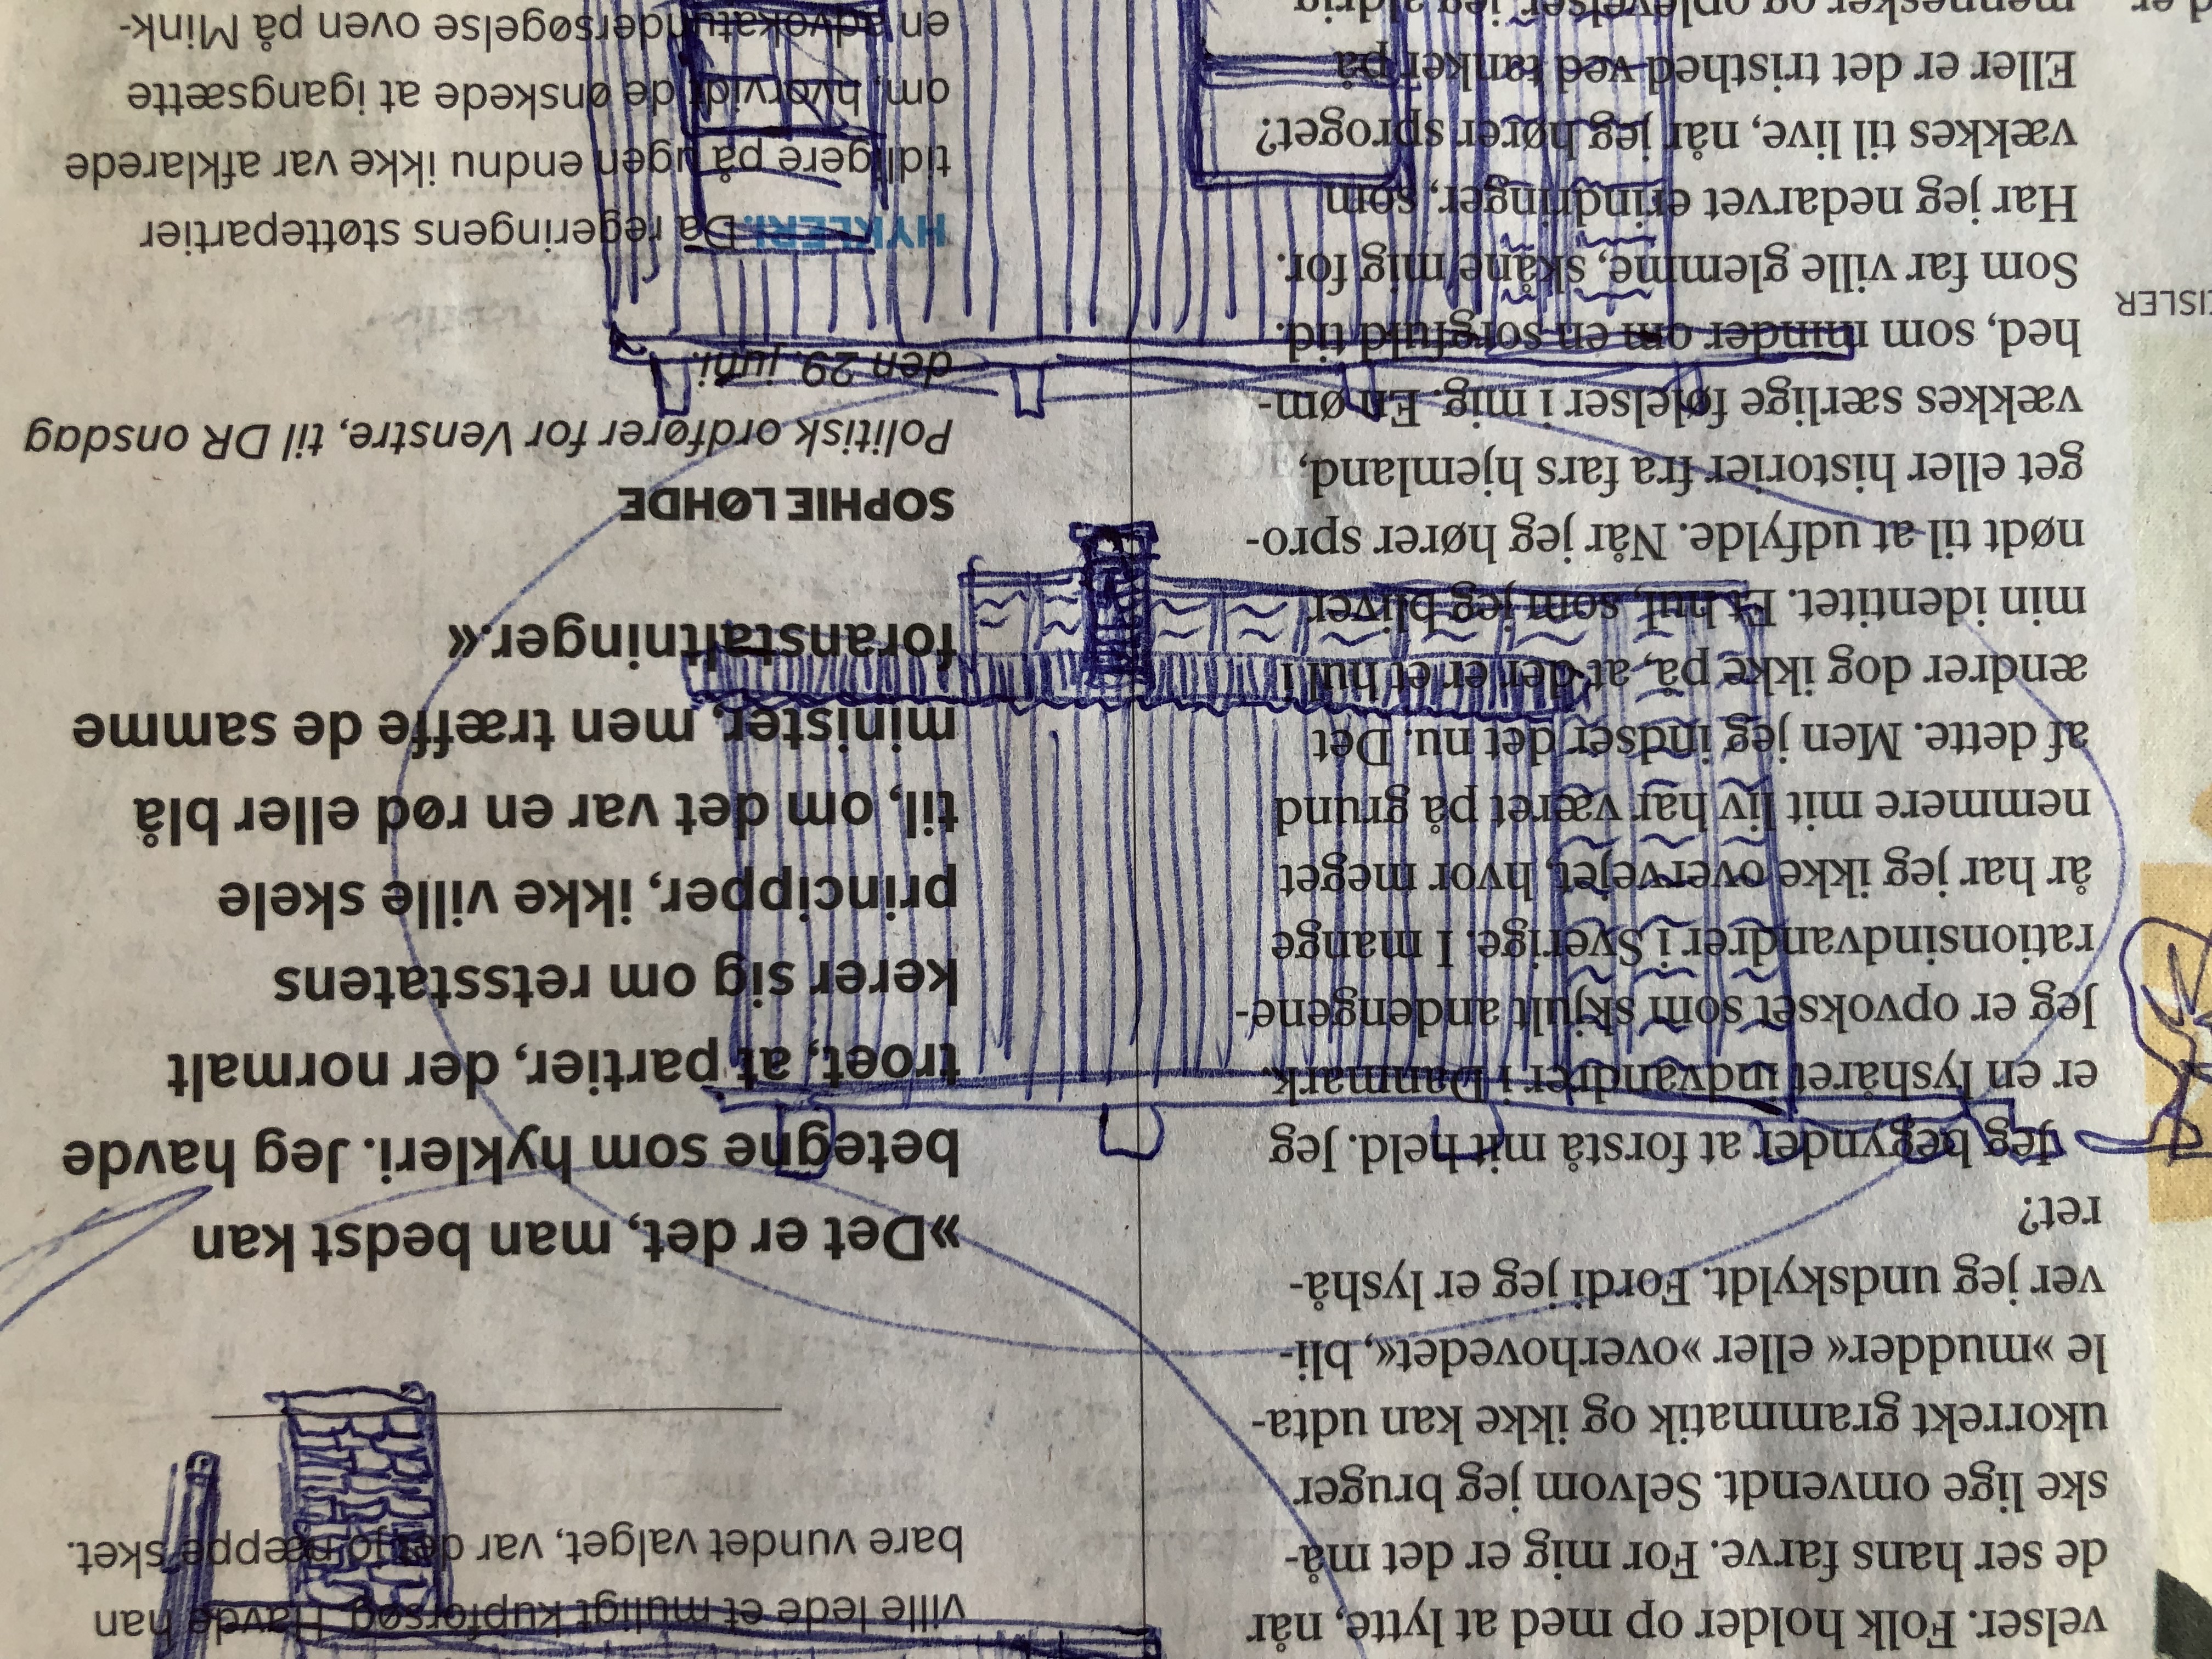 velser. Folk holder op med at lytte, når
de ser hans farve. For mig er det må-
ske lige omvendt. Selvom jeg bruger
ukorrekt grammatik og ikke kan udta-
le »mudder« eller »overhovedet«, bli-
ver jeg undskyldt. Fordi jeg er lyshå-
ret?
Jeg begynder at forstå mit held. Jeg
er en lyshåret indvandrer i Danmark.
Jeg er opvokset som skjult andengene-
rationsindvandrer i Sverige. I mange
år har jeg ikke overvejet, hvor meget
nemmere mit liv har været på grund
af dette. Men jeg indser det nu. Det
ændrer dog ikke på, at der er et hul i
min identitet. Et hul, som jeg bliver
nødt til at udfylde. Når jeg hører spro-
get eller historier fra fars hjemland,
vækkes særlige følelser i mig. En øm-
hed, som minder om en sorgfuld tid.
Som far ville glemme, skåne mig for.
Har jeg nedarvet erindringer, som
vækkes til live, når jeg hører sproget?
Eller er det tristhed ved tanker på
mennesker og oplevelser, jeg aldrig
EISLER
ville lede et muligt kupforsøg. Havde han
bare vundet valget, var det jo næppe sket.
»Det er det, man bedst kan
betegne som hykleri. Jeg havde
troet, at partier, der normalt
kerer sig om retsstatens
principper, ikke ville skele
til, om det var en rød eller blå
minister, men træffe de samme
foranstaltninger.«
SOPHIE LØHDE
Politisk ordfører for Venstre, til DR onsdag
den 29. juni.
HYKLERI. Da regeringens støttepartier
tidligere på ugen endnu ikke var afklarede
om, hvorvidt de ønskede at igangsætte
en advokatundersøgelse oven på Mink-